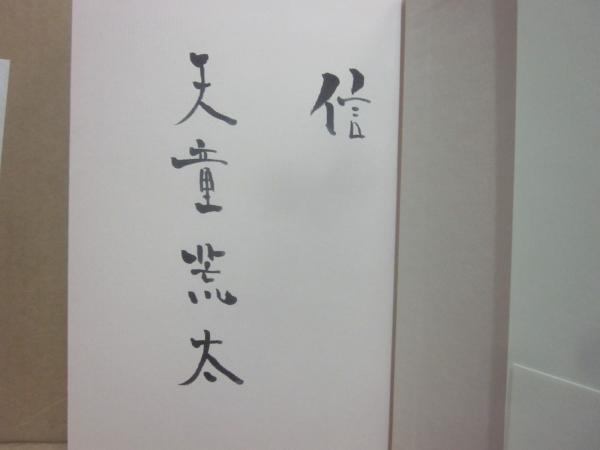 信
天童荒太